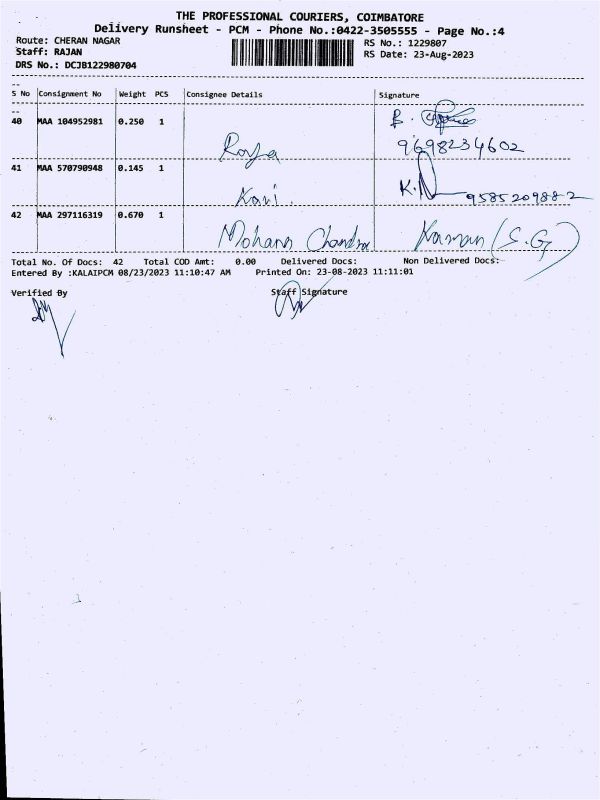 THE PROFESSIONAL COURIERS, COIMBATORE
Delivery Runsheet - PCM - Phone No.:0422-3505555 - Page No.:4
Route: CHERAN NAGAR RS No.: 1229807
Staff: RAJAN RS Date: 23-Aug-2023
DRS No.: DCJB122980704
S No Consignment No Weight PCS Consignee Details Signature
40 MAA 104952981 0.250 1 B.
9698234602
41 MAA 570790948 0.145 1 Kavi K.N 9585209882
42 MAA 297116319 0.670 1 Mohann Chandra Raman (S.G)
Total No. Of Docs: 42 Total COD Amt: 0.00 Delivered Docs: Non Delivered Docs:
Entered By :KALAIPCM 08/23/2023 11:10:47 AM Printed On: 23-08-2023 11:11:01
Verified By Staff Signature